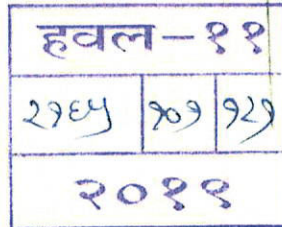 हवल-११
२१६५ १०१ १२१
२०१९